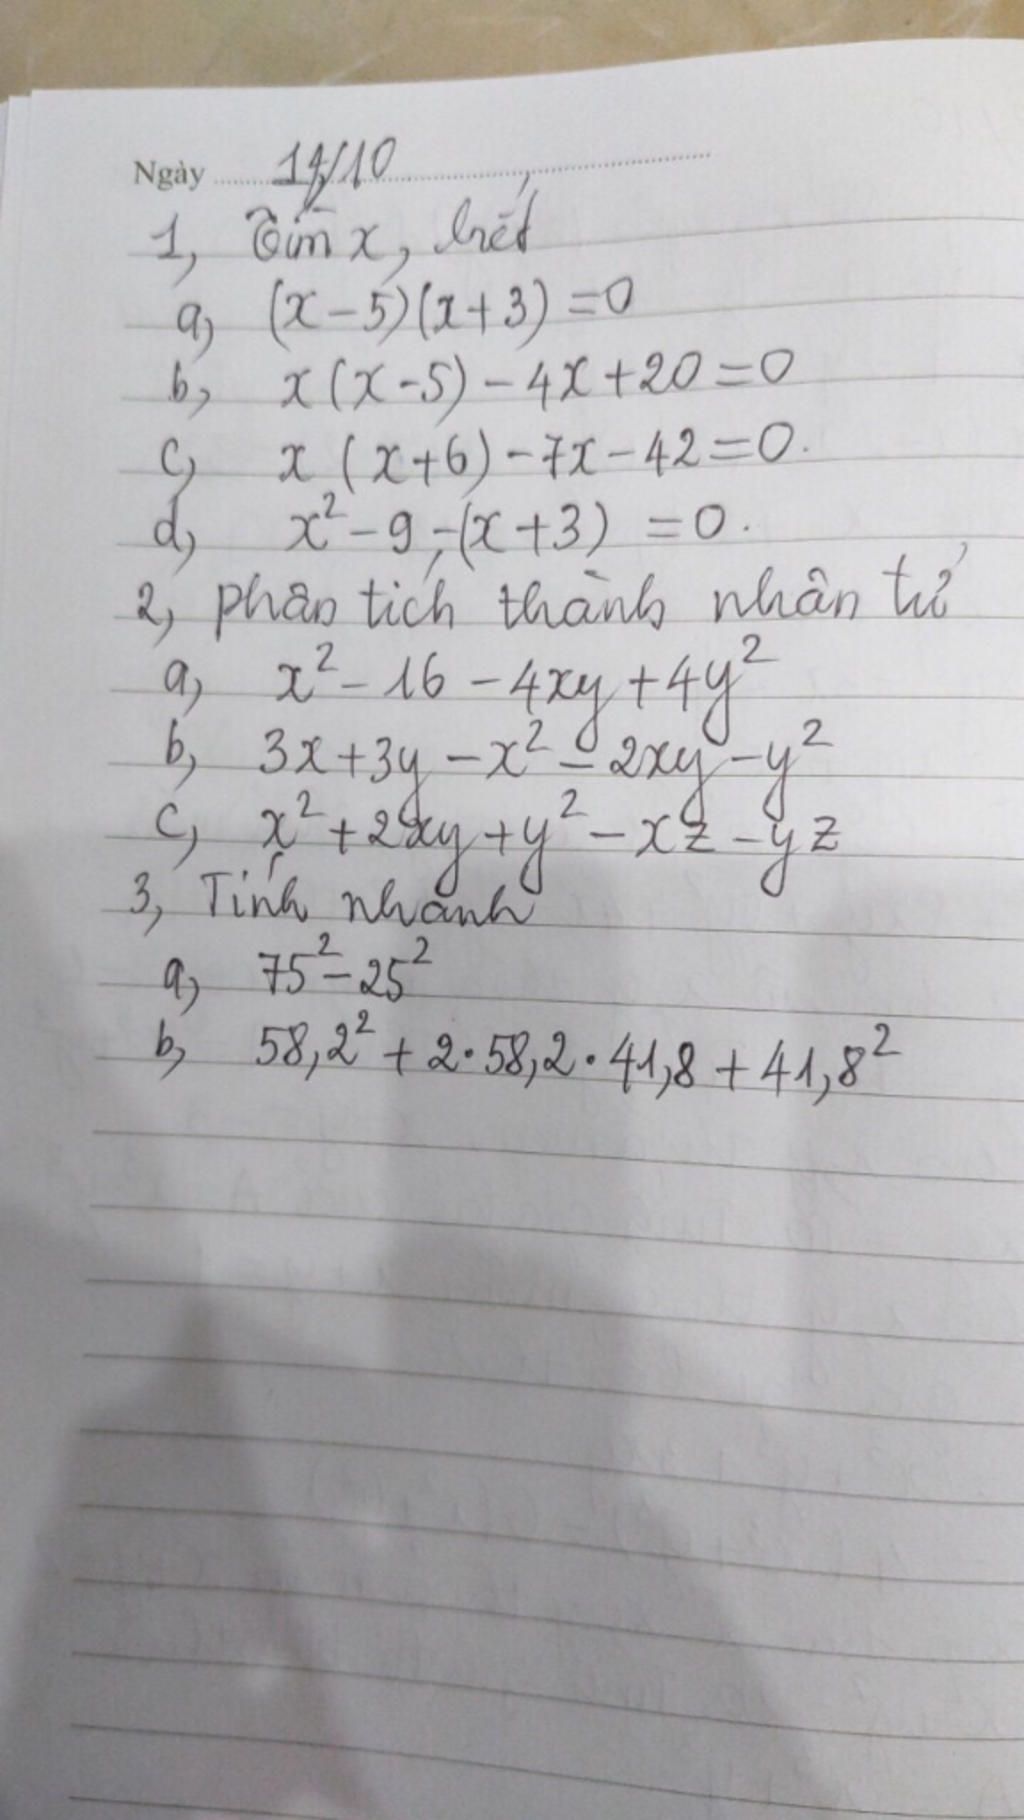 Ngày 14/10
1, Tìm x, biết
a, (x-5)(x+3)=0
b, x(x-5)-4x+20=0
c, x(x+6)-7x-42=0.
d, x²-9-(x+3)=0.
2, phân tích thành nhân tử
a, x²-16-4xy+4y²
b, 3x+3y-x²-2xy-y²
c, x²+2xy+y²-xz-yz
3, Tính nhanh
a, 75²-25²
b, 58,2²+2·58,2·41,8+41,8²